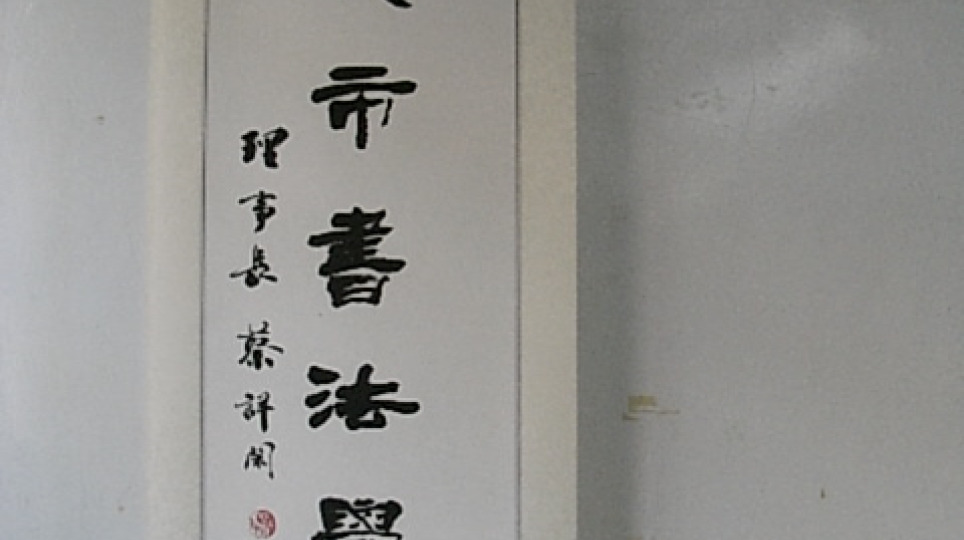 市書法學
理事長 蔡詳閑